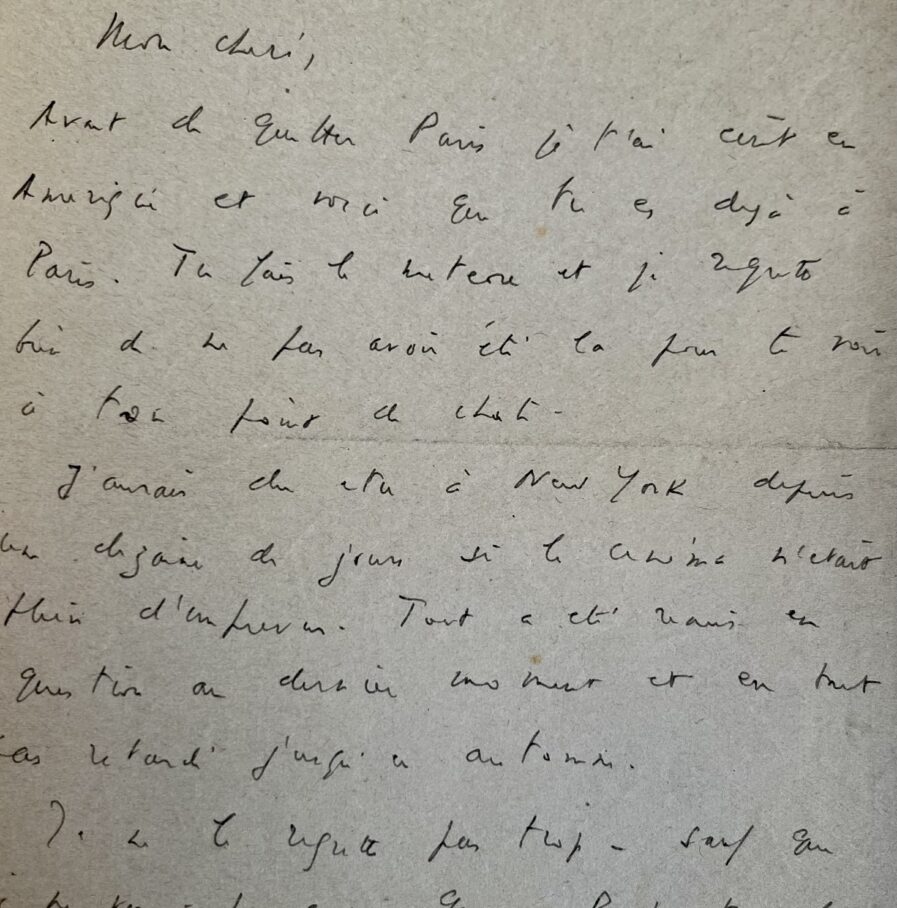 Mon chéri,
Avant de quitter Paris je t'ai écrit en
Amérique et voici que tu es dejà à
Paris. Tu fais le meteore et je regrette
bien de ne pas avoir été la pour te voir
à ton point de chute -
J'aurais du etre à New York depuis
une dizaine de jours si le cinéma n'etait
plein d'imprevus. Tout a eté remis en
question au dernier moment et en tout
cas retardé jusqu'a automne.
Je ne le regrette pas trop - sauf que